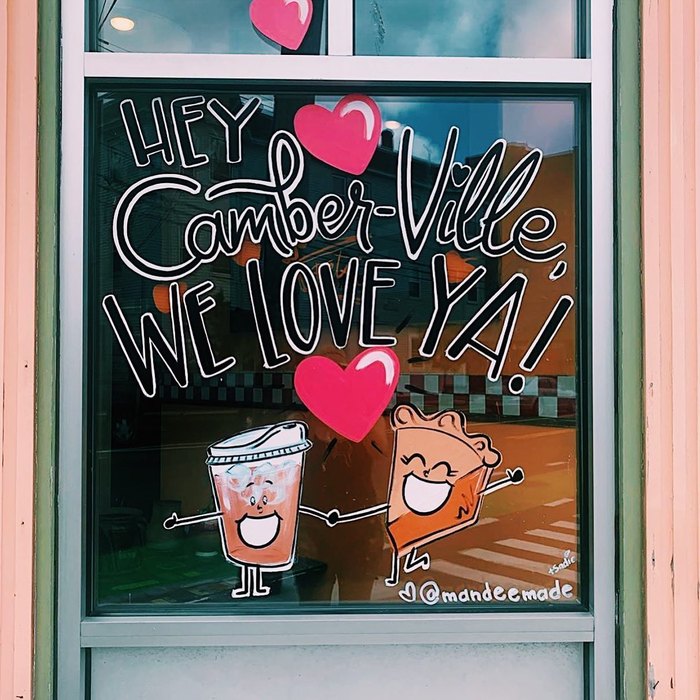 HEY
Camber-Ville,
WE LOVE YA!
+Sadie
@mandeemade